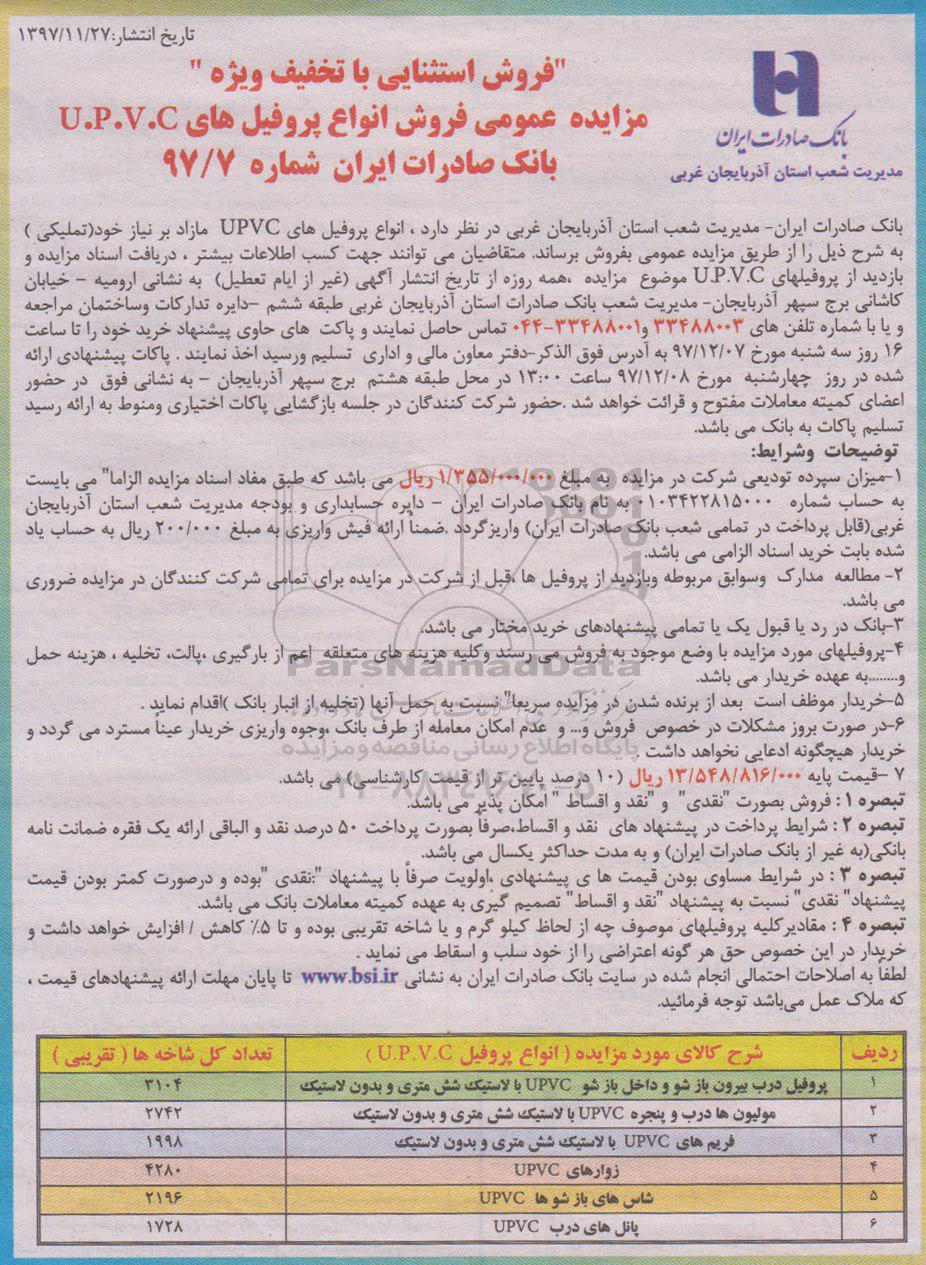 تاریخ انتشار:۱۳۹۷/۱۱/۲۷
"فروش استثنایی با تخفیف ویژه "
مزایده عمومی فروش انواع پروفیل های U.P.V.C
بانک صادرات ایران شماره ۹۷/۷
بانک صادرات ایران
مدیریت شعب استان آذربایجان غربی
بانک صادرات ایران- مدیریت شعب استان آذربایجان غربی در نظر دارد ، انواع پروفیل های UPVC مازاد بر نیاز خود(تملیکی )
به شرح ذیل را از طریق مزایده عمومی بفروش برساند. متقاضیان می توانند جهت کسب اطلاعات بیشتر ، دریافت اسناد مزایده و
بازدید از پروفیلهای U.P.V.C موضوع مزایده ،همه روزه از تاریخ انتشار آگهی (غیر از ایام تعطیل) به نشانی ارومیه – خیابان
کاشانی برج سپهر آذربایجان- مدیریت شعب بانک صادرات استان آذربایجان غربی طبقه ششم –دایره تدارکات وساختمان مراجعه
و یا با شماره تلفن های ۳۳۴۸۸۰۰۳ و۳۳۴۸۸۰۰۱-۰۴۴ تماس حاصل نمایند و پاکت های حاوی پیشنهاد خرید خود را تا ساعت
۱۶ روز سه شنبه مورخ ۹۷/۱۲/۰۷ به آدرس فوق الذکر-دفتر معاون مالی و اداری تسلیم ورسید اخذ نمایند . پاکات پیشنهادی ارائه
شده در روز چهارشنبه مورخ ۹۷/۱۲/۰۸ ساعت ۱۳:۰۰ در محل طبقه هشتم برج سپهر آذربایجان – به نشانی فوق در حضور
اعضای کمیته معاملات مفتوح و قرائت خواهد شد .حضور شرکت کنندگان در جلسه بازگشایی پاکات اختیاری ومنوط به ارائه رسید
تسلیم پاکات به بانک می باشد.
توضیحات وشرایط:
۱-میزان سپرده تودیعی شرکت در مزایده به مبلغ ۱/۳۵۵/۰۰۰/۰۰۰ ریال می باشد که طبق مفاد اسناد مزایده الزاما" می بایست
به حساب شماره ۰۱۰۳۴۲۲۸۱۵۰۰۰ به نام بانک صادرات ایران – دایره حسابداری و بودجه مدیریت شعب استان آذربایجان
غربی(قابل پرداخت در تمامی شعب بانک صادرات ایران) واریزگردد .ضمناً ارائه فیش واریزی به مبلغ ۲۰۰/۰۰۰ ریال به حساب یاد
شده بابت خرید اسناد الزامی می باشد.
۲- مطالعه مدارک وسوابق مربوطه وبازدید از پروفیل ها ،قبل از شرکت در مزایده برای تمامی شرکت کنندگان در مزایده ضروری
می باشد.
۳-بانک در رد یا قبول یک یا تمامی پیشنهادهای خرید مختار می باشد.
۴-پروفیلهای مورد مزایده با وضع موجود به فروش می رسند وکلیه هزینه های متعلقه اعم از بارگیری ،پالت، تخلیه ، هزینه حمل
و.......به عهده خریدار می باشد.
ParsNamadData
۵-خریدار موظف است بعد از برنده شدن در مزایده سریعا" نسبت به حمل آنها (تخلیه از انبار بانک )اقدام نماید .
۶-در صورت بروز مشکلات در خصوص فروش و... و عدم امکان معامله از طرف بانک ،وجوه واریزی خریدار عیناً مسترد می گردد و
خریدار هیچگونه ادعایی نخواهد داشت .
پایگاه اطلاع رسانی مناقصه و مزایده
۷ –قیمت پایه ۱۳/۵۴۸/۸۱۶/۰۰۰ ریال (۱۰ درصد پایین تر از قیمت کارشناسی) می باشد.
تبصره ۱: فروش بصورت "نقدی" و "نقد و اقساط " امکان پذیر می باشد.
تبصره ۲ : شرایط پرداخت در پیشنهاد های نقد و اقساط،صرفاً بصورت پرداخت ۵۰ درصد نقد و الباقی ارائه یک فقره ضمانت نامه
بانکی(به غیر از بانک صادرات ایران) و به مدت حداکثر یکسال می باشد.
تبصره ۳ : در شرایط مساوی بودن قیمت ها ی پیشنهادی ،اولویت صرفاً با پیشنهاد ":نقدی "بوده و درصورت کمتر بودن قیمت
پیشنهاد" نقدی" نسبت به پیشنهاد "نقد و اقساط" تصمیم گیری به عهده کمیته معاملات بانک می باشد.
تبصره ۴ : مقادیرکلیه پروفیلهای موصوف چه از لحاظ کیلو گرم و یا شاخه تقریبی بوده و تا ۵٪ کاهش / افزایش خواهد داشت و
خریدار در این خصوص حق هر گونه اعتراضی را از خود سلب و اسقاط می نماید .
لطفاً به اصلاحات احتمالی انجام شده در سایت بانک صادرات ایران به نشانی www.bsi.ir تا پایان مهلت ارائه پیشنهادهای قیمت ،
که ملاک عمل می‌باشد توجه فرمائید.
ردیف شرح کالای مورد مزایده ( انواع پروفیل U.P.V.C ) تعداد کل شاخه ها ( تقریبی )
۱ پروفیل درب بیرون باز شو و داخل باز شو UPVC با لاستیک شش متری و بدون لاستیک ۳۱۰۴
۲ مولیون ها درب و پنجره UPVC با لاستیک شش متری و بدون لاستیک ۲۷۴۲
۳ فریم های UPVC با لاستیک شش متری و بدون لاستیک ۱۹۹۸
۴ زوارهای UPVC ۴۲۸۰
۵ شاس های باز شو ها UPVC ۲۱۹۶
۶ پانل های درب UPVC ۱۷۲۸